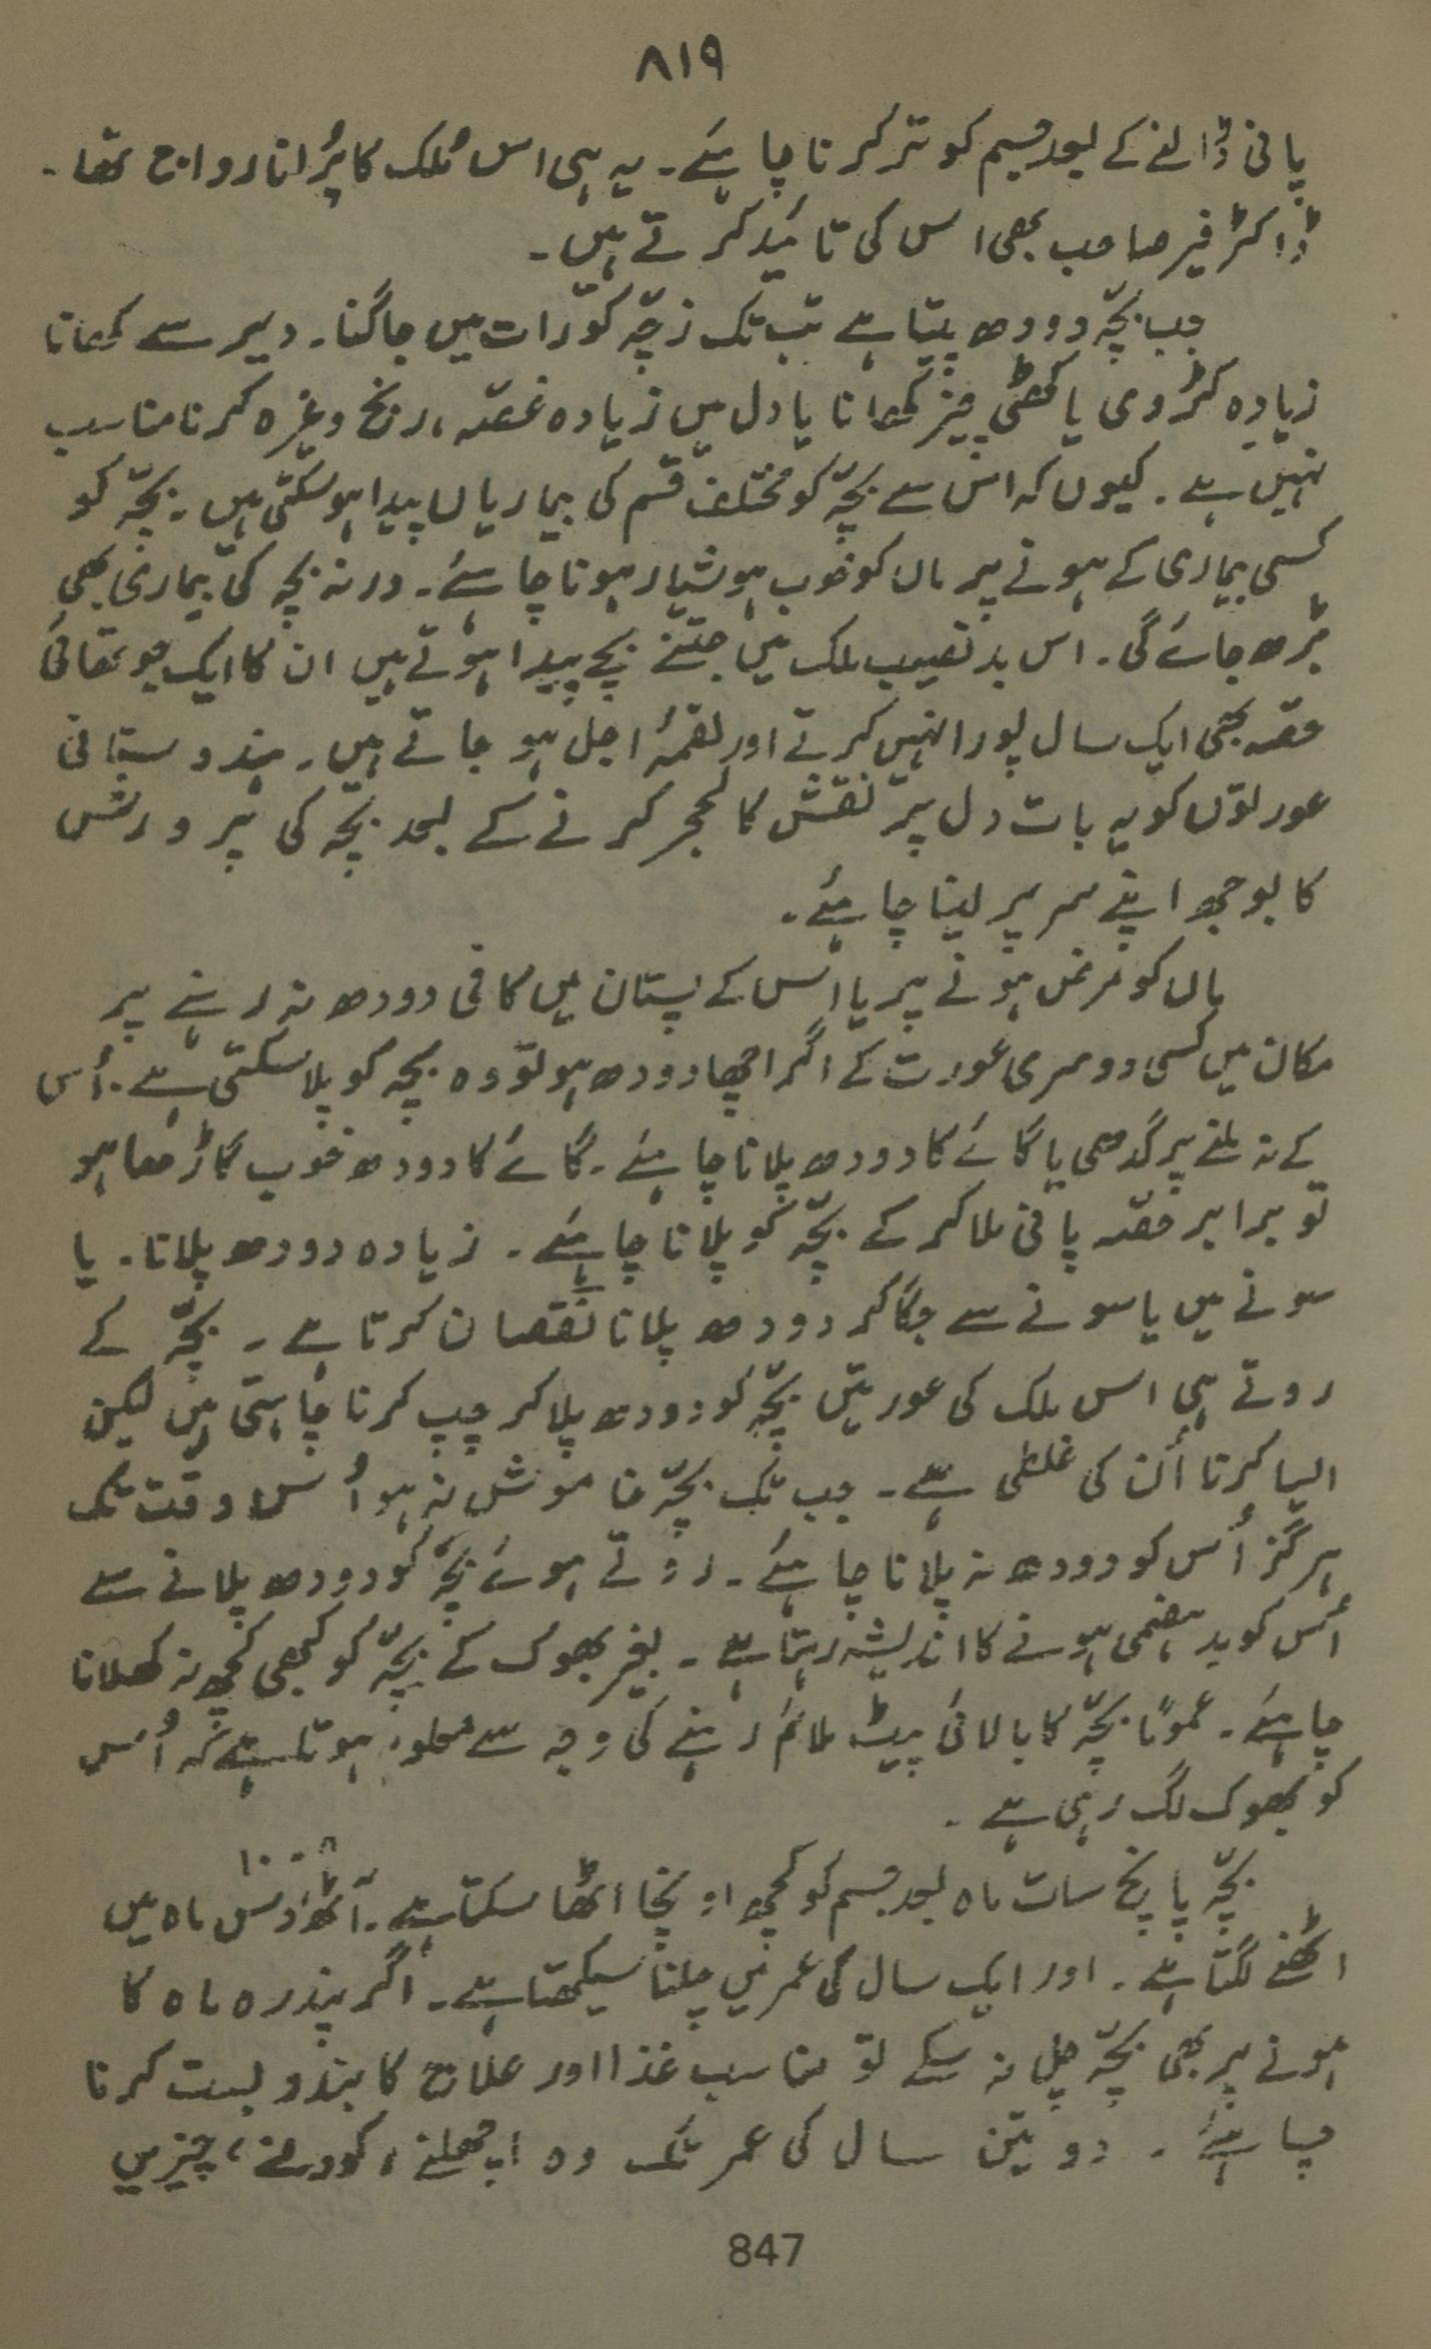 ۸۱۹
پانی ڈالنے کے بعد جسم کو تر کرنا چاہئے۔ یہ ہی اس مُلک کا پُرانا رواج تھا۔
ڈاکٹر فیر صاحب بھی اس کی تائید کرتے ہیں۔
جب بچّہ دودھ پیتا ہے تب تک زچّہ کو رات میں جاگنا۔ دیر سے کھانا
زیادہ کڑوی یا کھٹی چیز کھانا یا دل میں زیادہ غصّہ، رنج وغیرہ کرنا مناسب
نہیں ہے۔ کیوں کہ اس سے بچّہ کو مختلف قسم کی بیماریاں پیدا ہو سکتی ہیں۔ بچّہ کو
کسی بیماری کے ہونے پر ماں کو خوب ہوشیار ہونا چاہئے۔ ورنہ بچہ کی بیماری بھی
بڑھ جائے گی۔ اس بد نصیب ملک میں جتنے بچے پیدا ہوتے ہیں ان کا ایک چوتھائی
حصّہ بھی ایک سال پورا نہیں کرتے اور لقمۂ اجل ہو جاتے ہیں۔ ہندوستانی
عورتوں کو یہ بات دل پر نقش کالحجر کرنے کے بعد بچّہ کی پرورش
کا بوجھ اپنے سر پر لینا چاہئے۔
ماں کو مرض ہونے پر یا اُس کے پستان میں کافی دودھ نہ رہنے پر
مکان میں کسی دوسری عورت کے اگر اچھا دودھ ہو تو وہ بچّہ کو پلا سکتی ہے۔ اُس
کے نہ ملنے پر گدھی یا گائے کا دودھ پلانا چاہئے۔ گائے کا دودھ خوب گاڑھا ہو
تو برابر حصّہ پانی ملا کر کے بچّہ کو پلانا چاہئے۔ زیادہ دودھ پلانا۔ یا
سونے میں یا سونے سے جگا کر دودھ پلانا نقصان کرتا ہے۔ بچّہ کے
روتے ہی اس ملک کی عورتیں بچّہ کو دودھ پلا کر چپ کرنا چاہتی ہیں لیکن
ایسا کرنا اُن کی غلطی ہے۔ جب تک بچّہ خاموش نہ ہو اُس وقت تک
ہرگز اُس کو دودھ نہ پلانا چاہئے۔ روتے ہوئے بچّہ کو دودھ پلانے سے
اُس کو بد ہضمی ہونے کا اندیشہ رہتا ہے۔ بغیر بھوک کے بچّہ کو کبھی کچھ نہ کھلانا
چاہئے۔ عموماً بچّہ کا بالائی پیٹ ملائم رہنے کی وجہ سے معلوم ہوتا ہے کہ اُس
کو بھوک لگ رہی ہے۔
بچّہ پانچ سات ماہ بعد جسم کو کچھ اونچا اُٹھا سکتا ہے۔ آٹھ دس ۸-۱۰ ماہ میں
اٹھنے لگتا ہے۔ اور ایک سال کی عمر میں چلنا سیکھتا ہے۔ اگر پندرہ ماہ کا
ہونے پر بھی بچّہ چل نہ سکے تو مناسب غذا اور علاج کا بندوبست کرنا
چاہئے۔ دو تین سال کی عمر تک وہ اچھلنے، کودنے، چیزیں
847